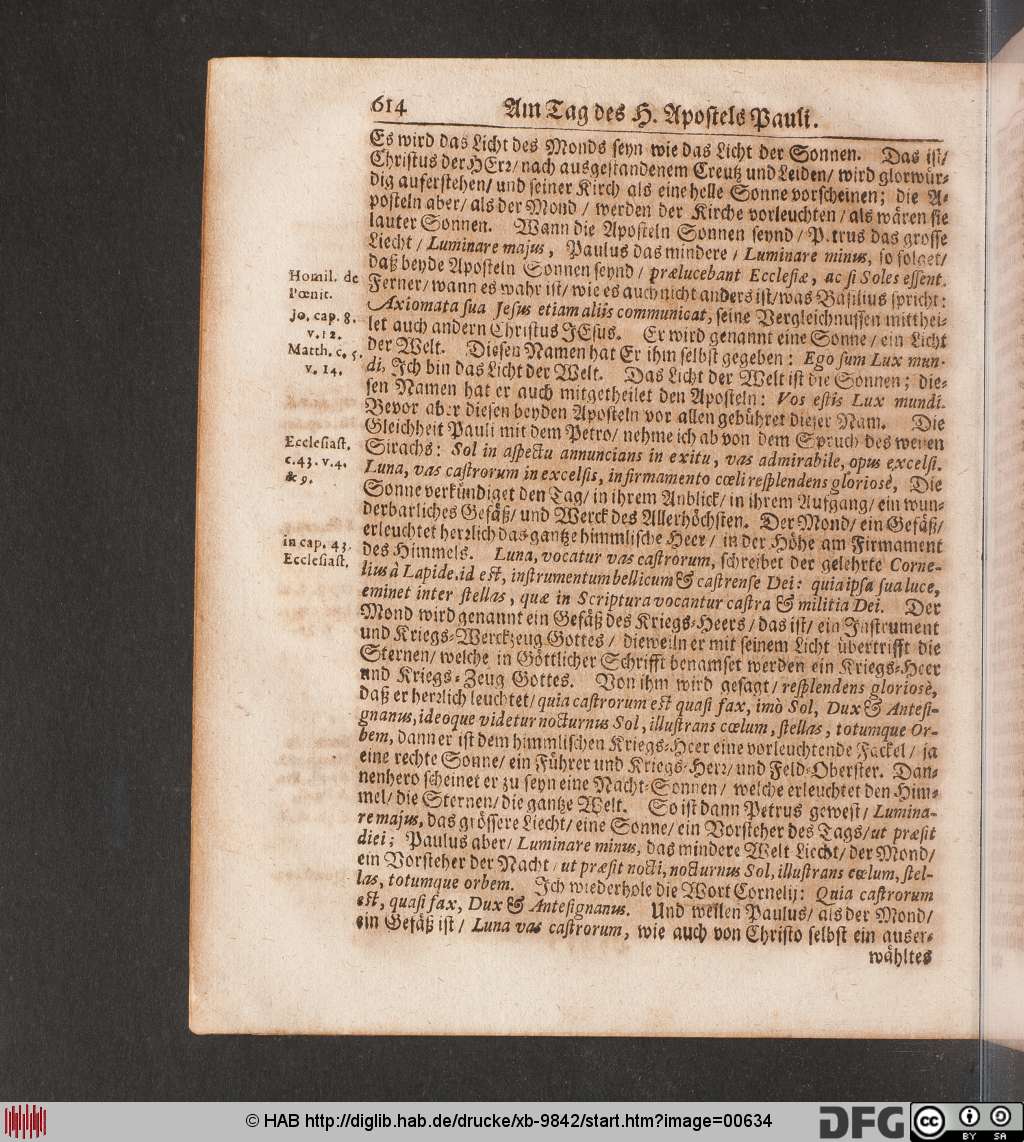 614 Am Tag des H. Apostels Pauli.
Es wird das Licht des Monds seyn wie das Licht der Sonnen. Das ist/
Christus der HErr/ nach ausgestandenem Creutz und Leiden/ wird glorwür-
dig auferstehen/ und seiner Kirch als eine helle Sonne vorscheinen; die A-
posteln aber/ als der Mond / werden der Kirche vorleuchten / als wären sie
lauter Sonnen. Wann die Aposteln Sonnen seynd / Petrus das grosse
Liecht / Luminare majus, Paulus das mindere / Luminare minus, so folget/
daß beyde Aposteln Sonnen seynd / prælucebant Ecclesiæ, ac si Soles essent.
Homil. de
Pœnit.
Ferner/ wann es wahr ist/ wie es auch nicht anders ist/ was Basilius spricht:
Axiomata sua Jesus etiam aliis communicat, seine Vergleichnussen mitthei-
Jo. cap. 8.
v. 12.
let auch andern Christus JEsus. Er wird genannt eine Sonne / ein Licht
der Welt. Diesen Namen hat Er ihm selbst gegeben: Ego sum Lux mun-
Matth. c. 5.
v. 14.
di, Ich bin das Licht der Welt. Das Licht der Welt ist die Sonnen; die-
sen Namen hat er auch mitgetheilet den Aposteln: Vos estis Lux mundi.
Bevor aber diesen beyden Aposteln vor allen gebühret dieser Nam. Die
Gleichheit Pauli mit dem Petro/ nehme ich ab von dem Spruch des weisen
Ecclesiast.
c. 43. v. 4.
& 9.
Sirachs: Sol in aspectu annuncians in exitu, vas admirabile, opus excelsi.
Luna, vas castrorum in excelsis, in firmamento cœli resplendens gloriosè, Die
Sonne verkündiget den Tag/ in ihrem Anblick/ in ihrem Aufgang/ ein wun-
derbarliches Gefäß/ und Werck des Allerhöchsten. Der Mond/ ein Gefäß/
erleuchtet herzlich das gantze himmlische Heer / in der Höhe am Firmament
in cap. 43.
Ecclesiast.
des Himmels. Luna, vocatur vas castrorum, schreibet der gelehrte Corne-
lius à Lapide. id est, instrumentum bellicum & castrense Dei: quia ipsa sua luce,
eminet inter stellas, quæ in Scriptura vocantur castra & militia Dei. Der
Mond wird genannt ein Gefäß des Kriegs-Heers / das ist/ ein Instrument
und Kriegs-Werckzeug Gottes / dieweiln er mit seinem Licht übertrifft die
Sternen/ welche in Göttlicher Schrifft benamset werden ein Kriegs-Heer
und Kriegs-Zeug Gottes. Von ihm wird gesagt/ resplendens gloriosè,
daß er herzlich leuchtet/ quia castrorum est quasi fax, imò Sol, Dux & Antesi-
gnanus, ideoque videtur nocturnus Sol, illustrans cœlum, stellas, totumque Or-
bem, dann er ist dem himmlischen Kriegs-Heer eine vorleuchtende Fackel/ ja
eine rechte Sonne/ ein Führer und Kriegs-Herr/ und Feld-Oberster. Dan-
nenhero scheinet er zu seyn eine Nacht-Sonnen / welche erleuchtet den Him-
mel/ die Sternen/ die gantze Welt. So ist dann Petrus gewest / Lumina-
re majus, das grössere Liecht/ eine Sonne/ ein Vorsteher des Tags/ ut præsit
diei; Paulus aber/ Luminare minus, das mindere Welt Liecht/ der Mond/
ein Vorsteher der Nacht / ut præsit nocti, nocturnus Sol, illustrans cœlum, stel-
las, totumque orbem. Ich wiederhole die Wort Cornelij: Quia castrorum
est, quasi fax, Dux & Antesignanus. Und weilen Paulus/ als der Mond/
ein Gefäß ist / Luna vas castrorum, wie auch von Christo selbst ein auser-
wähltes
© HAB http://diglib.hab.de/drucke/xb-9842/start.htm?image=00634
DFG
cc BY SA